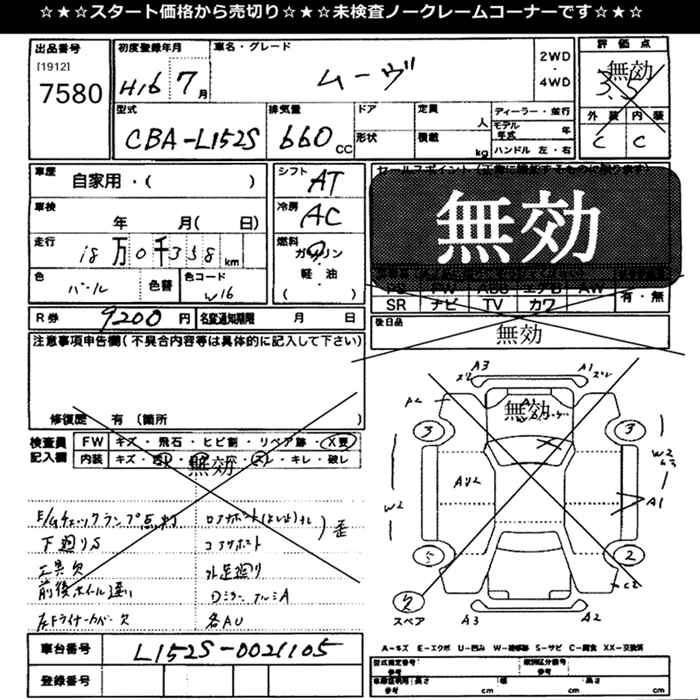 ☆★☆スタート価格から売切り☆★☆未検査ノークレームコーナーです☆★☆
出品番号
[1912]
7580
初度登録年月
H16 7月
車名・グレード
ムーヴ
2WD
・
4WD
評価点
3.5
無効
外装 内装
C C
型式
CBA-L152S
排気量
660 CC
ドア
形状
定員 人
積載 kg
ディーラー・並行
モデル年式 年
ハンドル 左・右
車歴
自家用・( )
車検
年 月( 日)
走行
18万0千358km
色
パール
色替
色コード
W16
シフト
AT
冷房
AC
燃料
ガソリン
軽・油
( )
無効
SR ナビ TV カワ
有・無
R券 9200円
名変通知期限 月 日
後日品
無効
注意事項申告欄(不具合内容等は具体的に記入して下さい)
修復歴 有 (箇所
検査員
記入欄
FW キズ・飛石・ヒビ割・リペア跡・X要
内装 キズ・・キレ・破レ
無効
E/Gチェックランプ点灯
下廻りS
工具欠
前後ホイール違い
コアサポート
外足廻り
各AU
歪
車台番号
L152S-0021105
登録番号
A3
A1
無効
3
3
AU2
W2
W2
A1
5
2
C2
2
スペア
A3
A2
A-キズ E-エクボ U-凹み W-補修跡 S-サビ C-腐食 XX-交換済
型式指定番号
参考
類別区分番号
参考
長さ cm 幅 cm 高さ cm